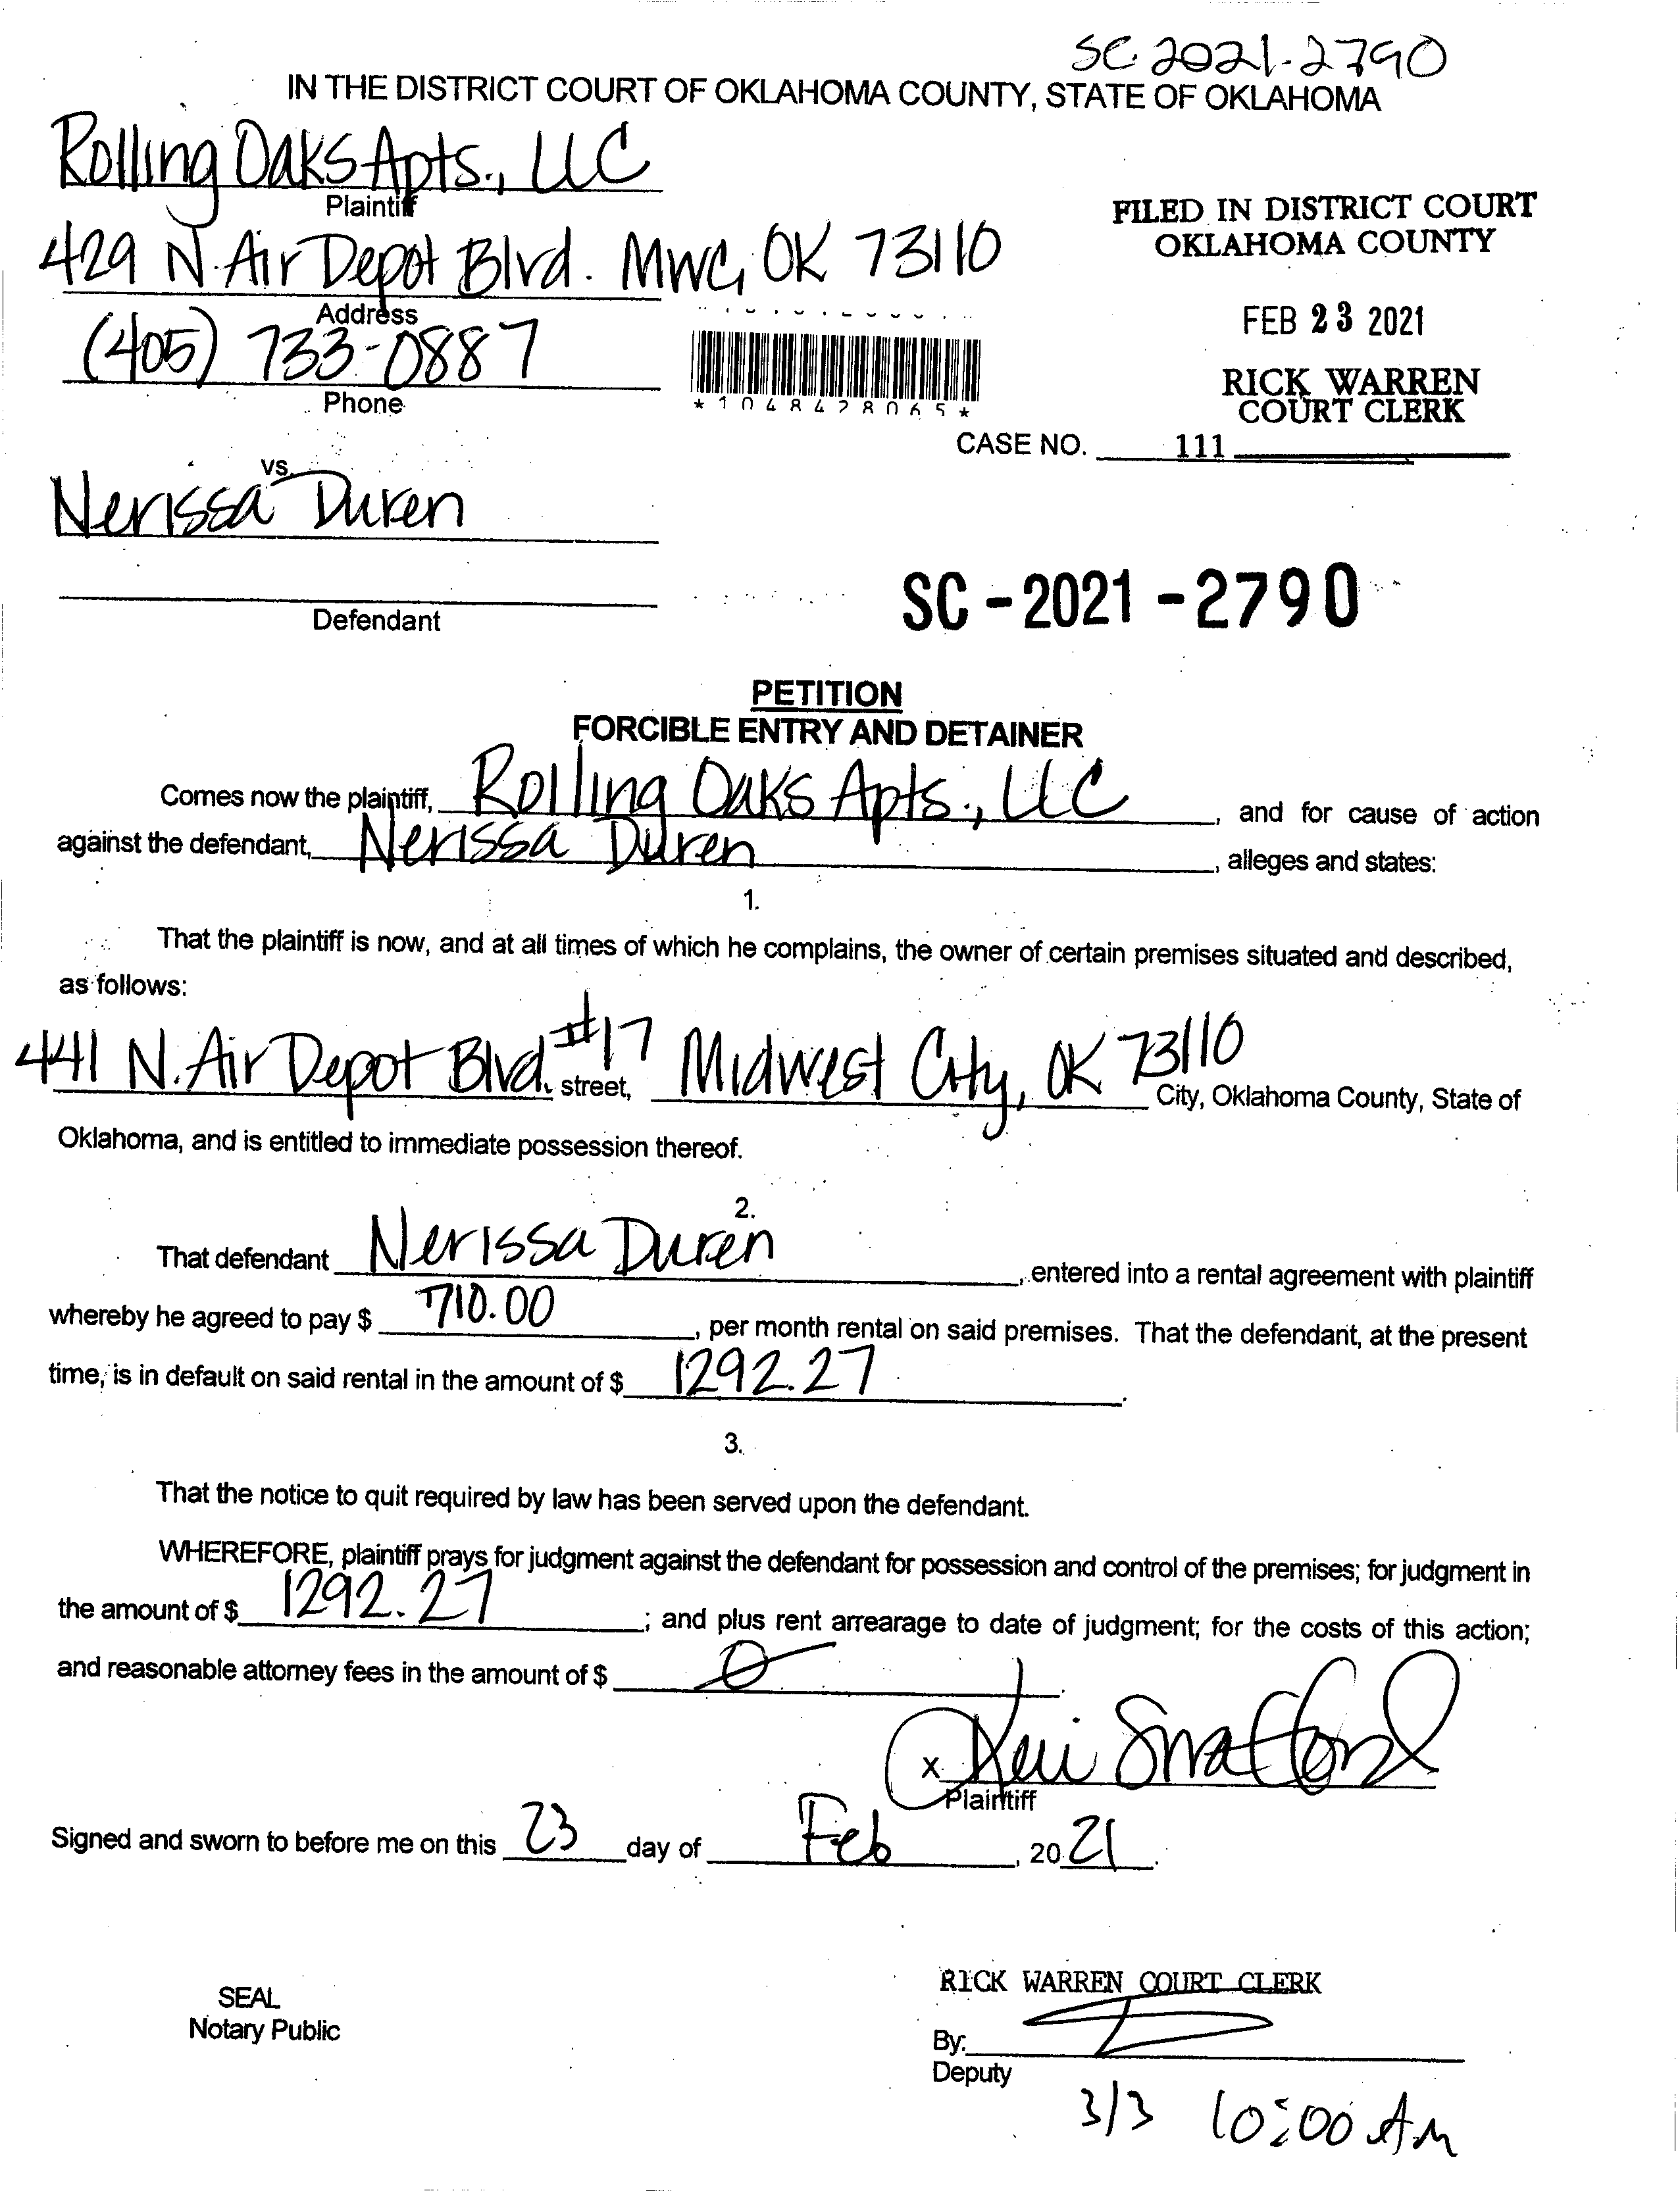 SC 2021-2790
IN THE DISTRICT COURT OF OKLAHOMA COUNTY, STATE OF OKLAHOMA
Rolling Oaks Apts., LLC
Plaintiff
429 N. Air Depot Blvd. MWC, OK 73110
Address
(405) 733-0887
Phone
FILED IN DISTRICT COURT
OKLAHOMA COUNTY
FEB 23 2021
RICK WARREN
COURT CLERK
*1048428065*
CASE NO. 111
vs.
Nerissa Duren
Defendant
SC-2021-2790
PETITION
FORCIBLE ENTRY AND DETAINER
Comes now the plaintiff, Rolling Oaks Apts., LLC, and for cause of action
against the defendant, Nerissa Duren, alleges and states:
1.
That the plaintiff is now, and at all times of which he complains, the owner of certain premises situated and described,
as follows:
441 N. Air Depot Blvd. #17 street, Midwest City, OK 73110 City, Oklahoma County, State of
Oklahoma, and is entitled to immediate possession thereof.
2.
That defendant Nerissa Duren, entered into a rental agreement with plaintiff
whereby he agreed to pay $ 710.00, per month rental on said premises. That the defendant, at the present
time, is in default on said rental in the amount of $ 1292.27.
3.
That the notice to quit required by law has been served upon the defendant.
WHEREFORE, plaintiff prays for judgment against the defendant for possession and control of the premises; for judgment in
the amount of $ 1292.27; and plus rent arrearage to date of judgment; for the costs of this action;
and reasonable attorney fees in the amount of $ 0.
x
Plaintiff
Signed and sworn to before me on this 23 day of Feb, 2021.
SEAL
Notary Public
RICK WARREN COURT CLERK
By:
Deputy
3/3 10:00 AM